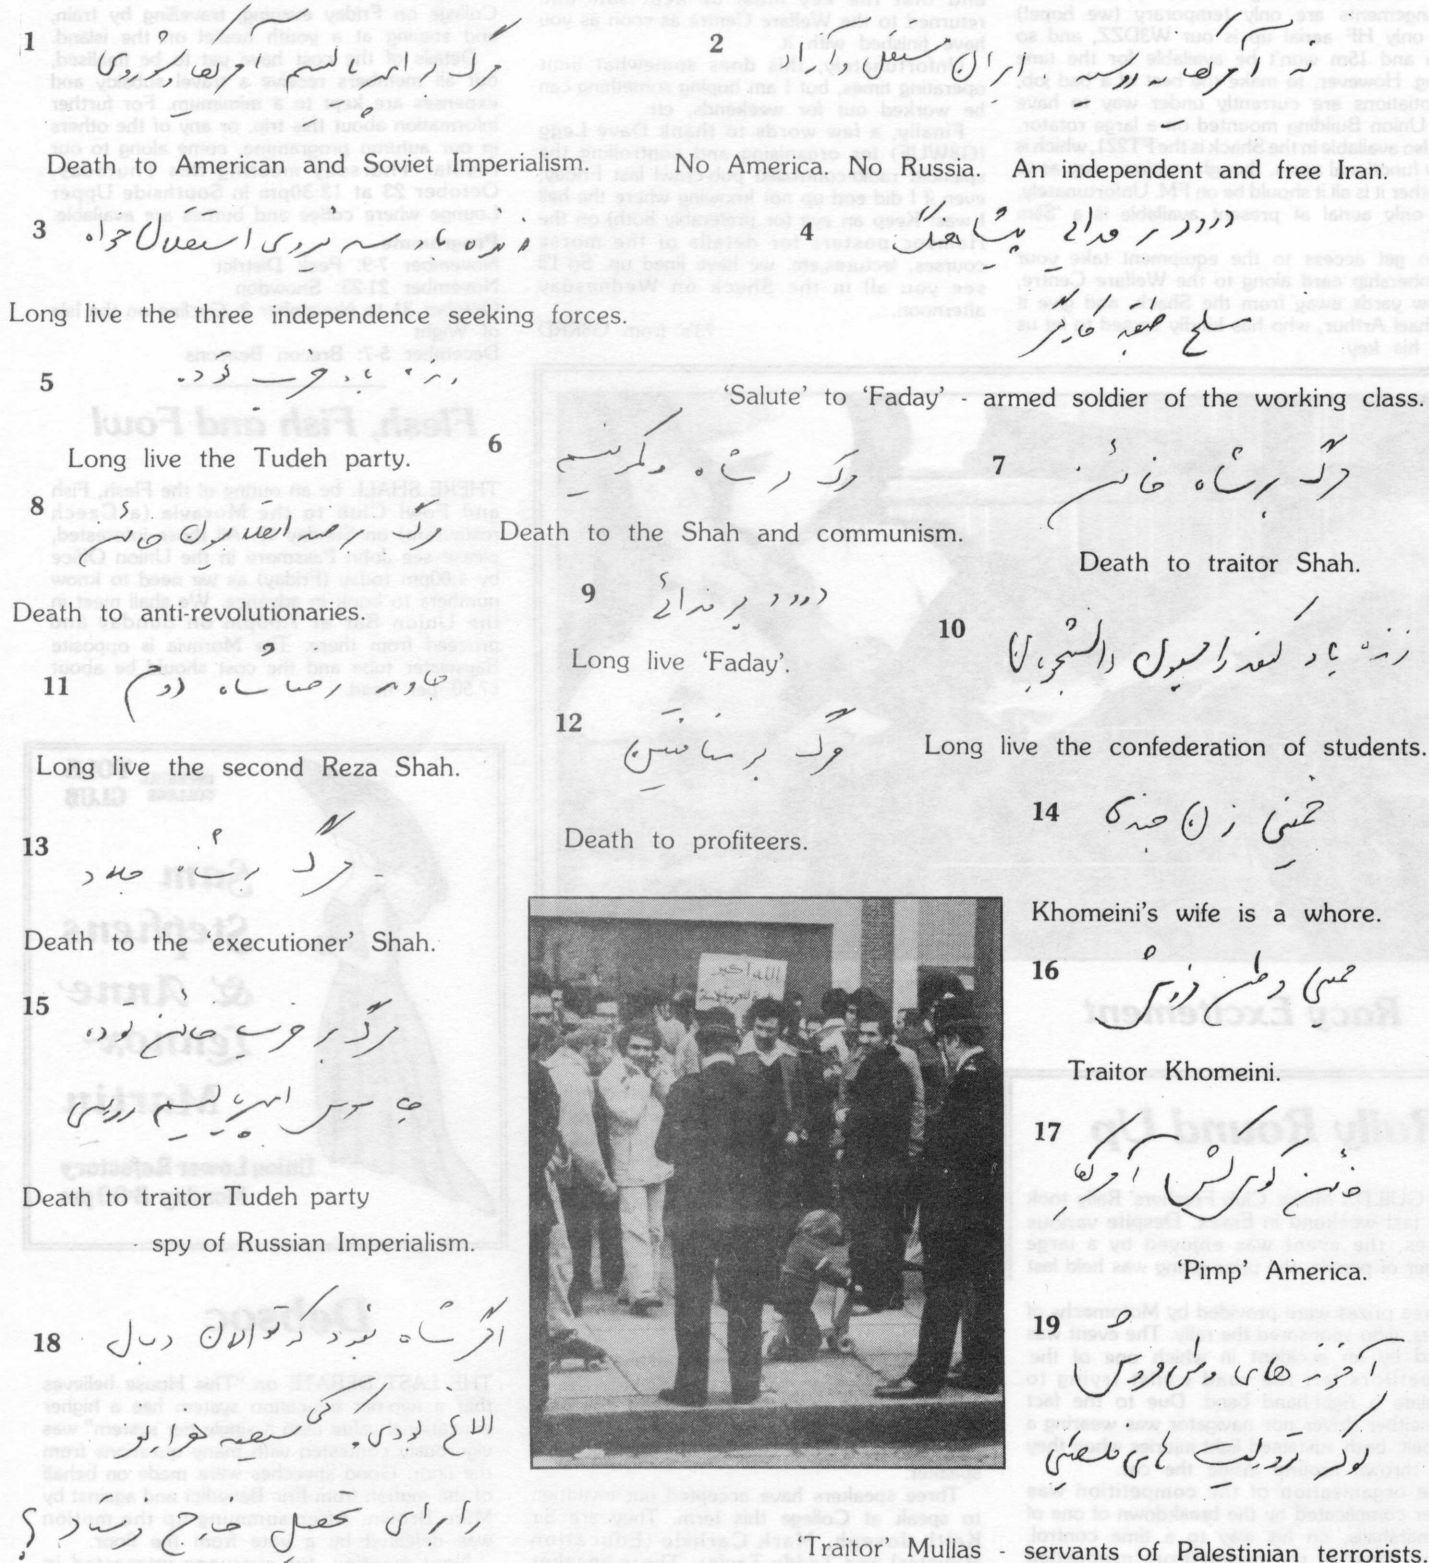 1
مرگ بر امپریالیسم آمریکا و شوروی
Death to American and Soviet Imperialism.
2
نه آمریکا نه روسیه ایران مستقل و آزاد
No America. No Russia. An independent and free Iran.
3
زنده باد سه نیروی استقلال خواه
Long live the three independence seeking forces.
4
درود بر فدائی پیشاهنگ
مسلح طبقه کارگر
'Salute' to 'Faday' - armed soldier of the working class.
5
زنده باد حزب توده
Long live the Tudeh party.
6
مرگ بر شاه و کمونیسم
Death to the Shah and communism.
7
مرگ بر شاه خائن
Death to traitor Shah.
8
مرگ بر ضد انقلابیون خائن
Death to anti-revolutionaries.
9
درود بر فدائی
Long live 'Faday'.
10
زنده باد کنفدراسیون دانشجویان
Long live the confederation of students.
11
جاوید رضا شاه دوم
Long live the second Reza Shah.
12
مرگ بر منافقین
Death to profiteers.
13
مرگ بر شاه جلاد
Death to the 'executioner' Shah.
14
خمینی زن جنده
Khomeini's wife is a whore.
15
مرگ بر حزب خائن توده
جاسوس امپریالیسم روسی
Death to traitor Tudeh party
- spy of Russian Imperialism.
16
خمینی وطن فروش
Traitor Khomeini.
17
خائن آمریکا
'Pimp' America.
18
اگر شاه نبود که تو الان دنبال
الاغ بودی
را برای تحصیل خارج فرستاد؟
19
آخوند های وطن فروش
نوکر تروریست های فلسطینی
'Traitor' Mullas - servants of Palestinian terrorists.
الله اکبر